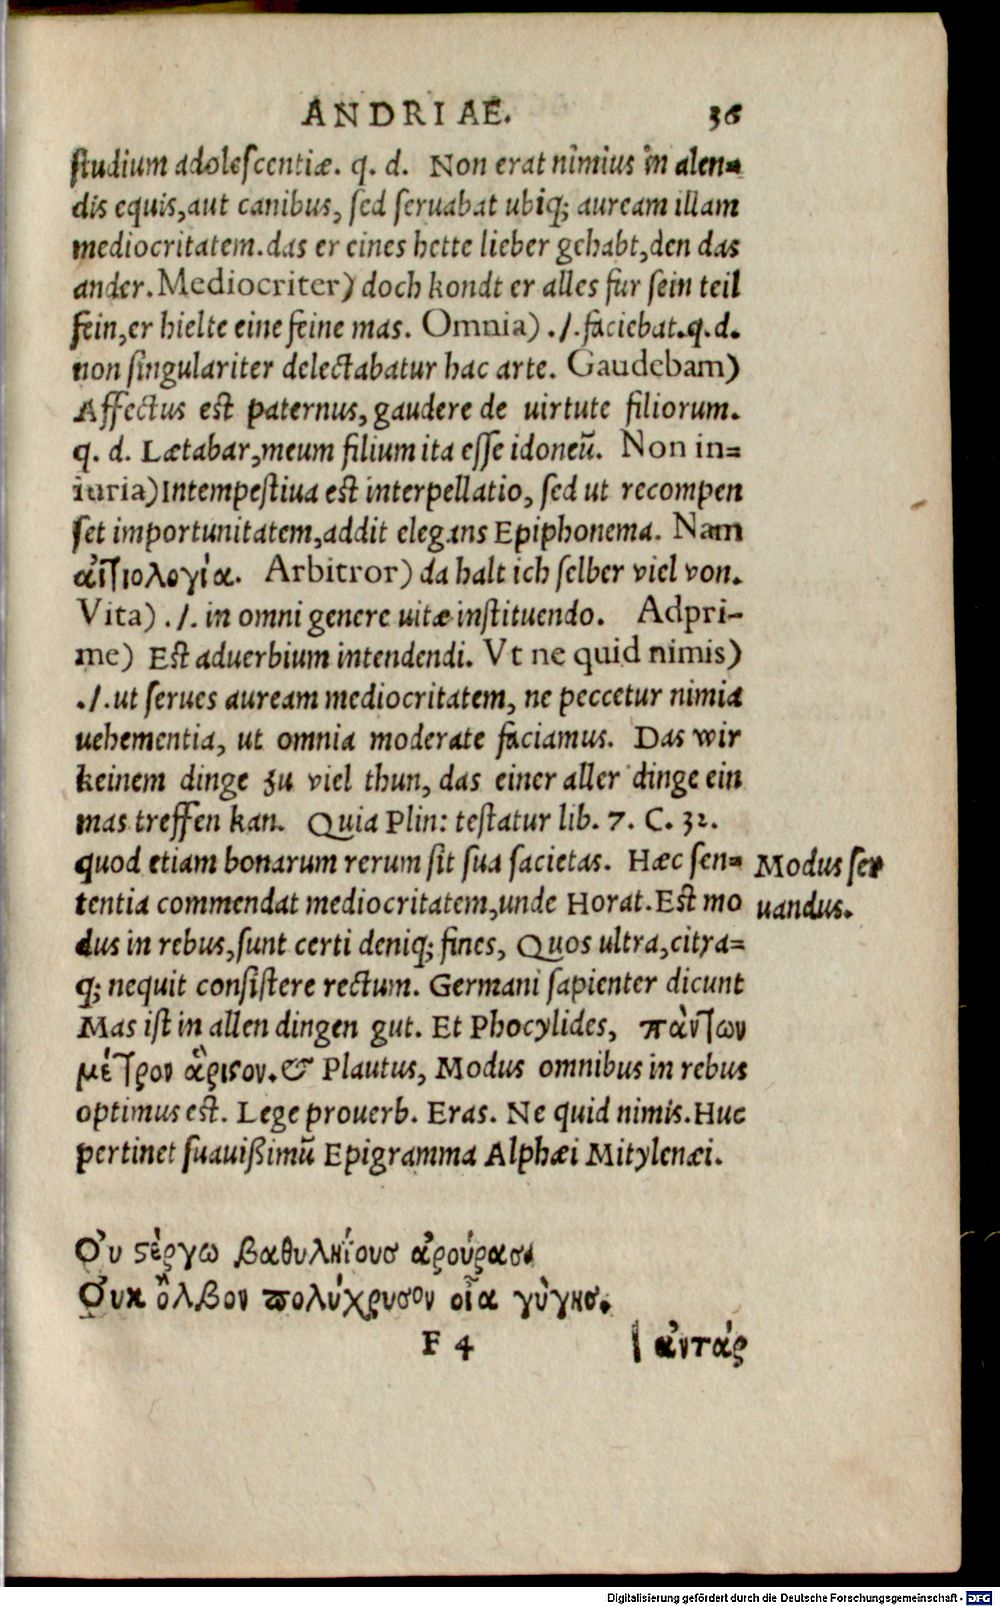 ANDRIAE. 36
studium adolescentiæ. q. d. Non erat nimius in alen=
dis equis, aut canibus, sed seruabat ubiq; auream illam
mediocritatem. das er eines hette lieber gehabt, den das
ander. Mediocriter) doch kondt er alles fur sein teil
fein, er hielte eine feine mas. Omnia) ./. faciebat. q. d.
non singulariter delectabatur hac arte. Gaudebam)
Affectus est paternus, gaudere de uirtute filiorum.
q. d. Lætabar, meum filium ita esse idoneũ. Non in=
iuria) Intempestiua est interpellatio, sed ut recompen
set importunitatem, addit elegans Epiphonema. Nam
αἰτιολογία. Arbitror) da halt ich selber viel von.
Vita) ./. in omni genere uitæ instituendo. Adpri-
me) Est aduerbium intendendi. Vt ne quid nimis)
./. ut serues auream mediocritatem, ne peccetur nimia
uehementia, ut omnia moderate faciamus. Das wir
keinem dinge zu viel thun, das einer aller dinge ein
mas treffen kan. Quia Plin: testatur lib. 7. C. 32.
quod etiam bonarum rerum sit sua sacietas. Hæc sen=
tentia commendat mediocritatem, unde Horat. Est mo
dus in rebus, sunt certi deniq; fines, Quos ultra, citra=
q; nequit consistere rectum. Germani sapienter dicunt
Mas ist in allen dingen gut. Et Phocylides, πὰντων
μέτρον ἄριςον. & Plautus, Modus omnibus in rebus
optimus est. Lege prouerb. Eras. Ne quid nimis. Huc
pertinet suauißimũ Epigramma Alphæi Mitylenæi.
Modus ser
uandus.
Ὀυ ςέργω βαθυληΐουσ ἀρούρασ.
Ὀυκ ὄλβον πολύχρυσον οἷα γὺγησ.
F 4 ἀυτάρ
Digitalisierung gefördert durch die Deutsche Forschungsgemeinschaft - DFG